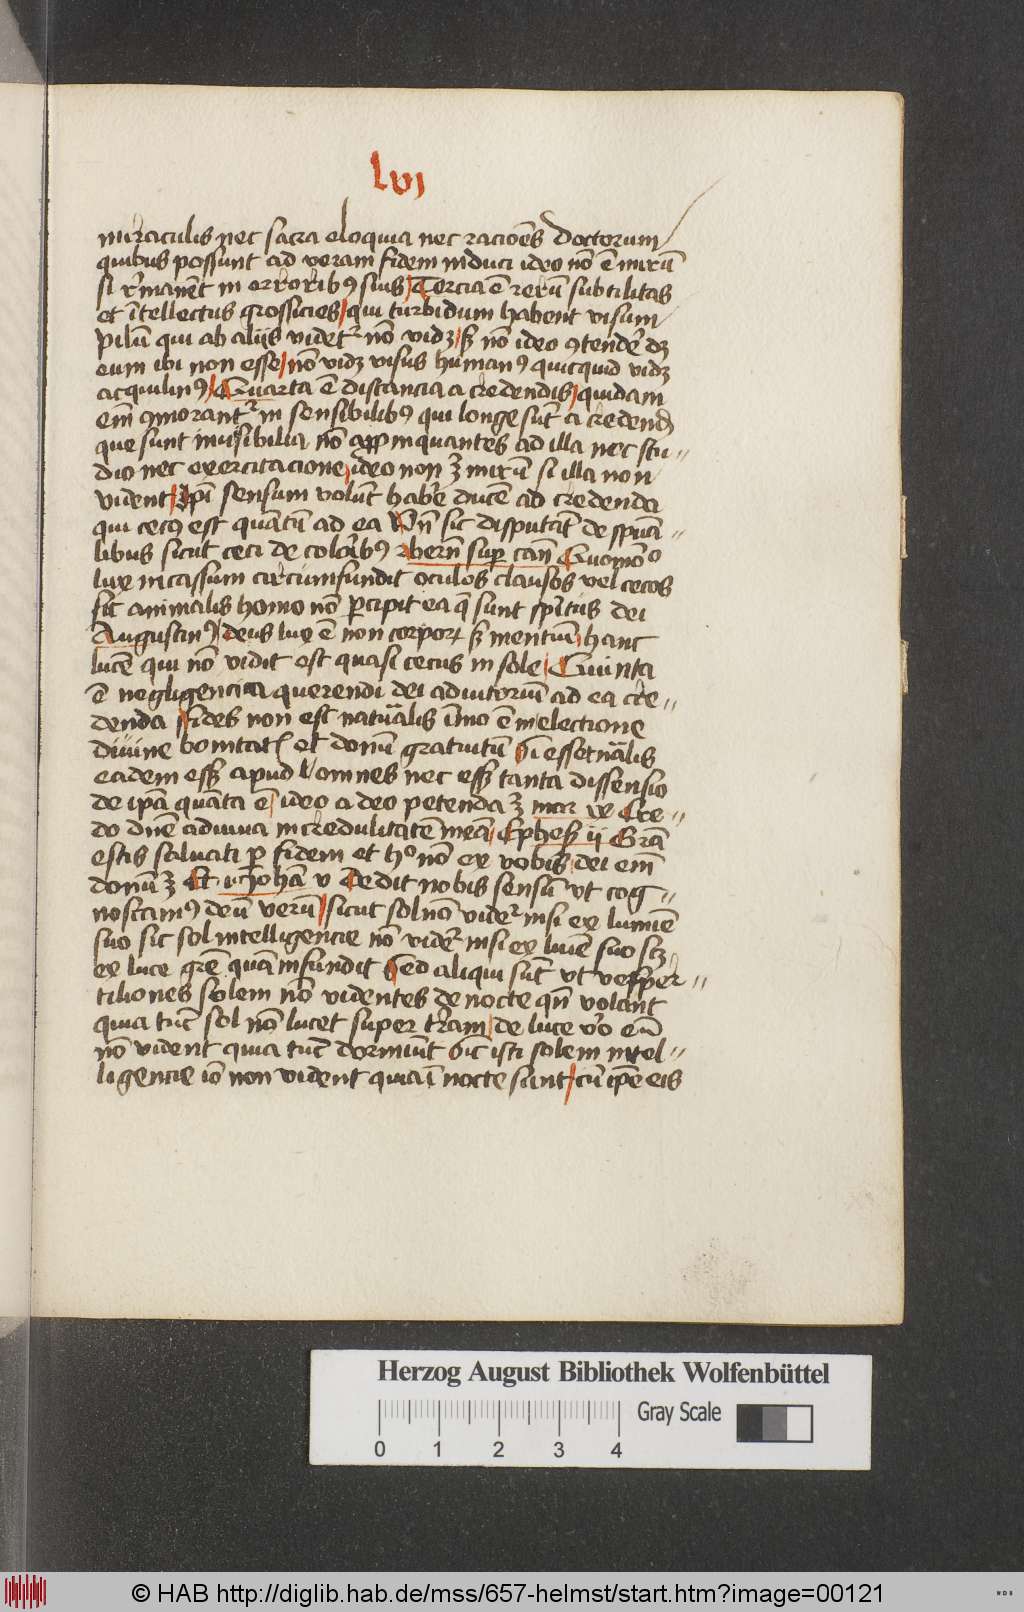 lvi
miraculis nec sacra eloquia nec racioēs doctorum
quibus possunt ad veram fidem induci ideo nō ē mirū
si rͥmanēt in erroribꝰ suis Tercia ē rerū subtilitas
et ītellectus grossicies qui turbidum habent visum
pilū qui ab aliis videtᷣ nō vidꝫ sꝫ nō ideo ꝯtendē dꝫ
eum ibi non esse nō vidꝫ visus humanꝰ quicquid vidꝫ
acquilinꝰ Quarta ē distancia a credendis quidam
em̄ ꝯmorantᷣ in sensibilibꝰ qui longe sūt a credend
que sunt inuisibilia nō appinquantes ad illa nec stu-
dio nec exercitacione ideo non ꝫ mirū si illa non
vident Ip̄i sensum volūt habē ducē ad credenda
qui cecꝰ est quātū ad ea Vn̄ sic disputāt de sp̄uā-
libus sicut ceci de coloribꝰ bern̄ sup̲ can̄ Quomͦo
lux incassum circumfundit oculos clausos vel cecos
sic animalis homo nō ꝑcipit ea q̄ sunt sp̄itus dei
Augustinꝰ deus lux ē non corpoꝝ sꝫ mentiū hanc
lucē qui nō vidit est quasi cecus in sole Quinta
ē negligencia querendi dei adiutoriū ad ea cre-
denda fides non est natālis īmo ē in electione
diuine bonitatꝭ et donū gratuitū Si esset nālis
eadem essꝫ apud omnes nec essꝫ tanta dissensio
de ip̄a quāta ē ideo a deo petenda ꝫ mar ix Cre-
do dn̄e adiuua incredulitatē meā Ephes ij Grā
estis saluati ꝑ fidem et hͦ nō ex vobis dei em̄
donū ꝫ Et i Johā v Dedit nobis sensū vt cog-
noscamꝰ deū verū sicut sol nō videtᷣ nisi ex lumīe
suo sic sol intelligencie nō videtᷣ nisi ex lumīe suo scꝫ
ex luce grē quā infundit Sed aliqui sūt vt vesper-
tiliones solem nō videntes de nocte qn̄ volant
quia tūc sol nō lucet super trām de luce vͦo eū
nō vident quia tūc dormiūt Sic isti solem intel-
ligencie iō non vident quia ī nocte sunt cū ip̄e eis
Herzog August Bibliothek Wolfenbüttel
0 1 2 3 4 Gray Scale
© HAB http://diglib.hab.de/mss/657-helmst/start.htm?image=00121